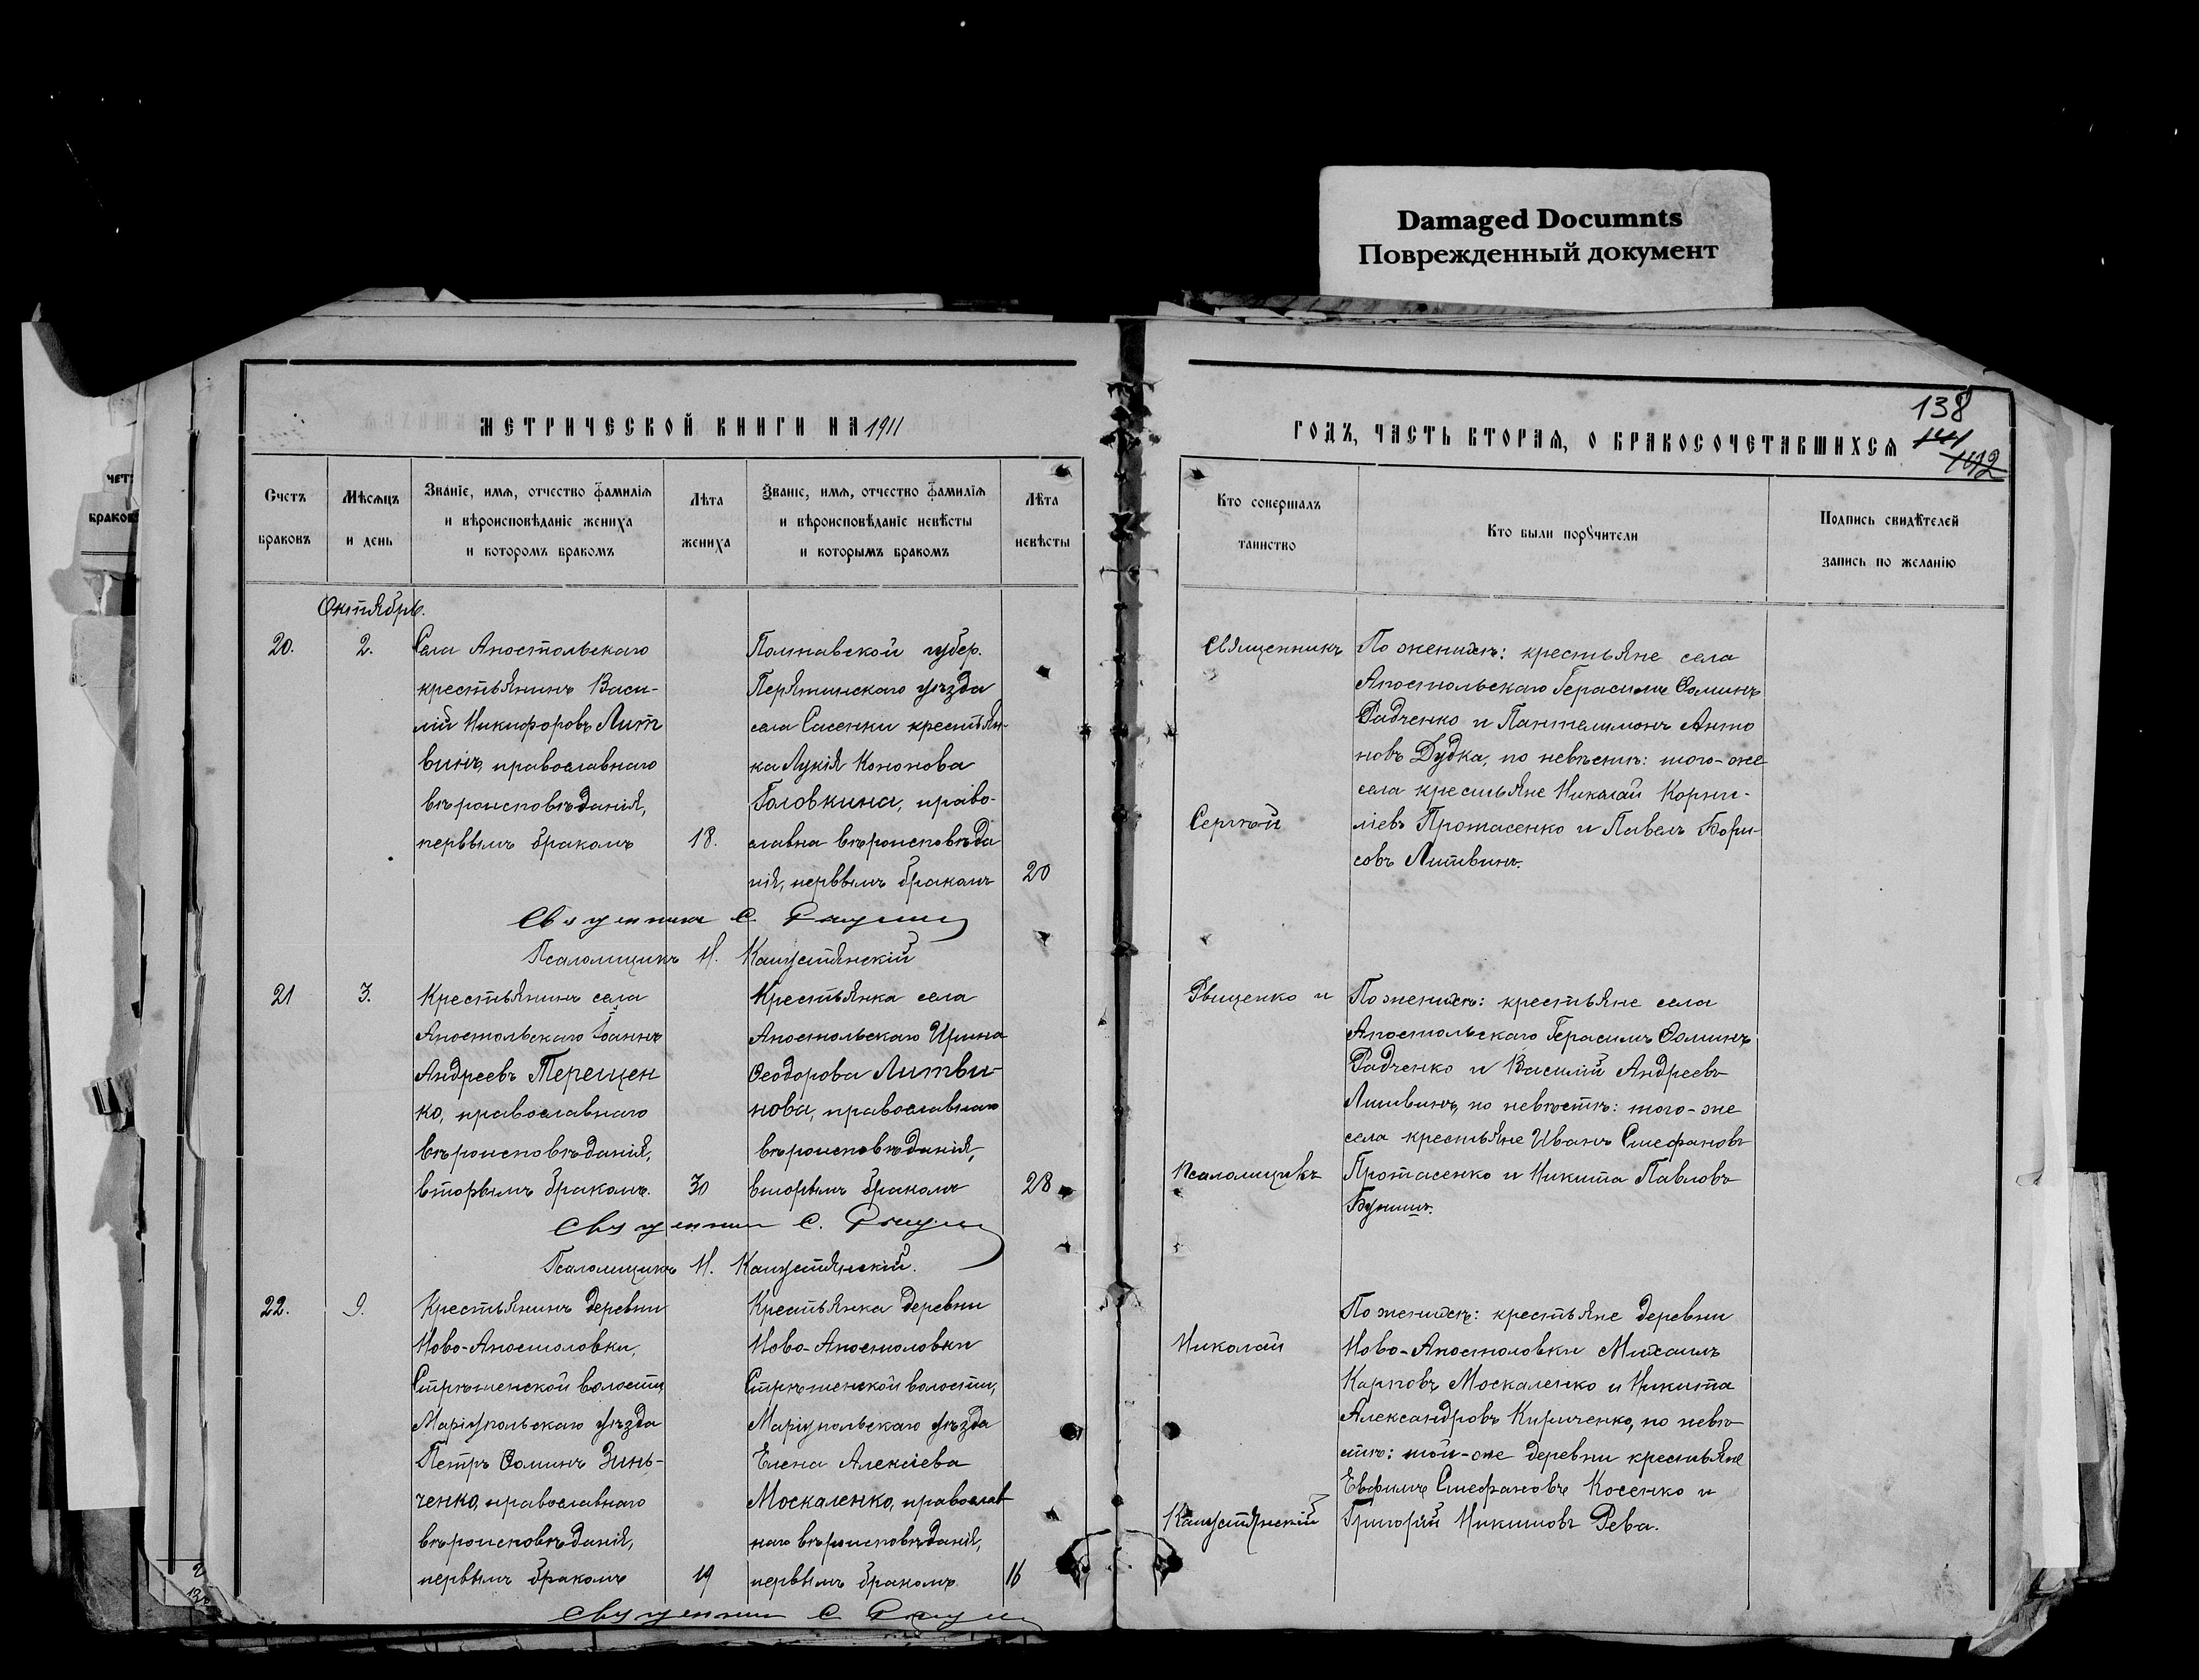 Damaged Documnts
Поврежденный документ
МЕТРИЧЕСКОЙ КНИГИ НА 1911
Счетъ браковъ
Мѣсяцъ и день
Званіе, имя, отчество фамилія
и вѣроисповѣданіе жениха
и которомъ бракомъ
Лѣта жениха
Званіе, имя, отчество фамилія
и вѣроисповѣданіе невѣсты
и которымъ бракомъ
Лѣта невѣсты
Октябрь.
20.
2.
Села Апостольскаго
крестьянинъ Васи-
лій Никифоровъ Лит
винъ, православнаго
вѣроисповѣданія,
первымъ бракомъ
18.
Полтавской губер.
Пирятинскаго уѣзда
села Сасенки крестьян-
ка Лукія Кононова
Головкина, право-
славна вѣроисповѣда
нія, первымъ бракомъ
20
Священникъ С.
Псаломщикъ Н. Капустянскій
21
3.
Крестьянинъ села
Апостольскаго Іоаннъ
Андреевъ Терещен
ко, православнаго
вѣроисповѣданія,
вторымъ бракомъ.
30
Крестьянка села
Апостольскаго Ирина
Ѳеодорова Литви-
нова, православнаго
вѣроисповѣданія,
вторымъ бракомъ
28
Священникъ С.
Псаломщикъ Н. Капустянскій.
22.
9.
Крестьянинъ деревни
Ново-Апостоловки,
Стрѣтенской волости
Маріупольскаго уѣзда
Петръ Ѳоминъ Зинь-
ченко, православнаго
вѣроисповѣданія,
первымъ бракомъ
19
Крестьянка деревни
Ново-Апостоловки
Стрѣтенской волости,
Маріупольскаго уѣзда
Елена Алексіева
Москаленко, православ
наго вѣроисповѣданія,
первымъ бракомъ
16
Священникъ С.
138
141
1012
ГОДЪ, ЧАСТЬ ВТОРАЯ, О БРАКОСОЧЕТАВШИХСЯ
Кто совершалъ
таинство
Кто были порꙋчители
Подпись свидѣтелей
запись по желанію
Священникъ
Сергѣй
Рвиценко и
Псаломщикъ
Николай
Капустянскій
По женихѣ: крестьяне села
Апостольскаго Герасимъ Ѳоминъ
Радченко и Пантелимонъ Анто
новъ Дудка, по невѣстѣ: того-же
села крестьяне Николай Корни-
ліевъ Протасенко и Павелъ Бори-
совъ Литвинъ.
По женихѣ: крестьяне села
Апостольскаго Герасимъ Ѳоминъ
Радченко и Василій Андреевъ
Литвинъ, по невѣстѣ: того-же
села крестьяне Иванъ Стефановъ
Протасенко и Никита Павловъ
По женихѣ: крестьяне деревни
Ново-Апостоловки Михаилъ
Карповъ Москаленко и Никита
Александровъ Кириченко, по невѣ-
стѣ: той-же деревни крестьяне
Евфимъ Стефановъ Косенко и
Григорій Никитовъ Рева.